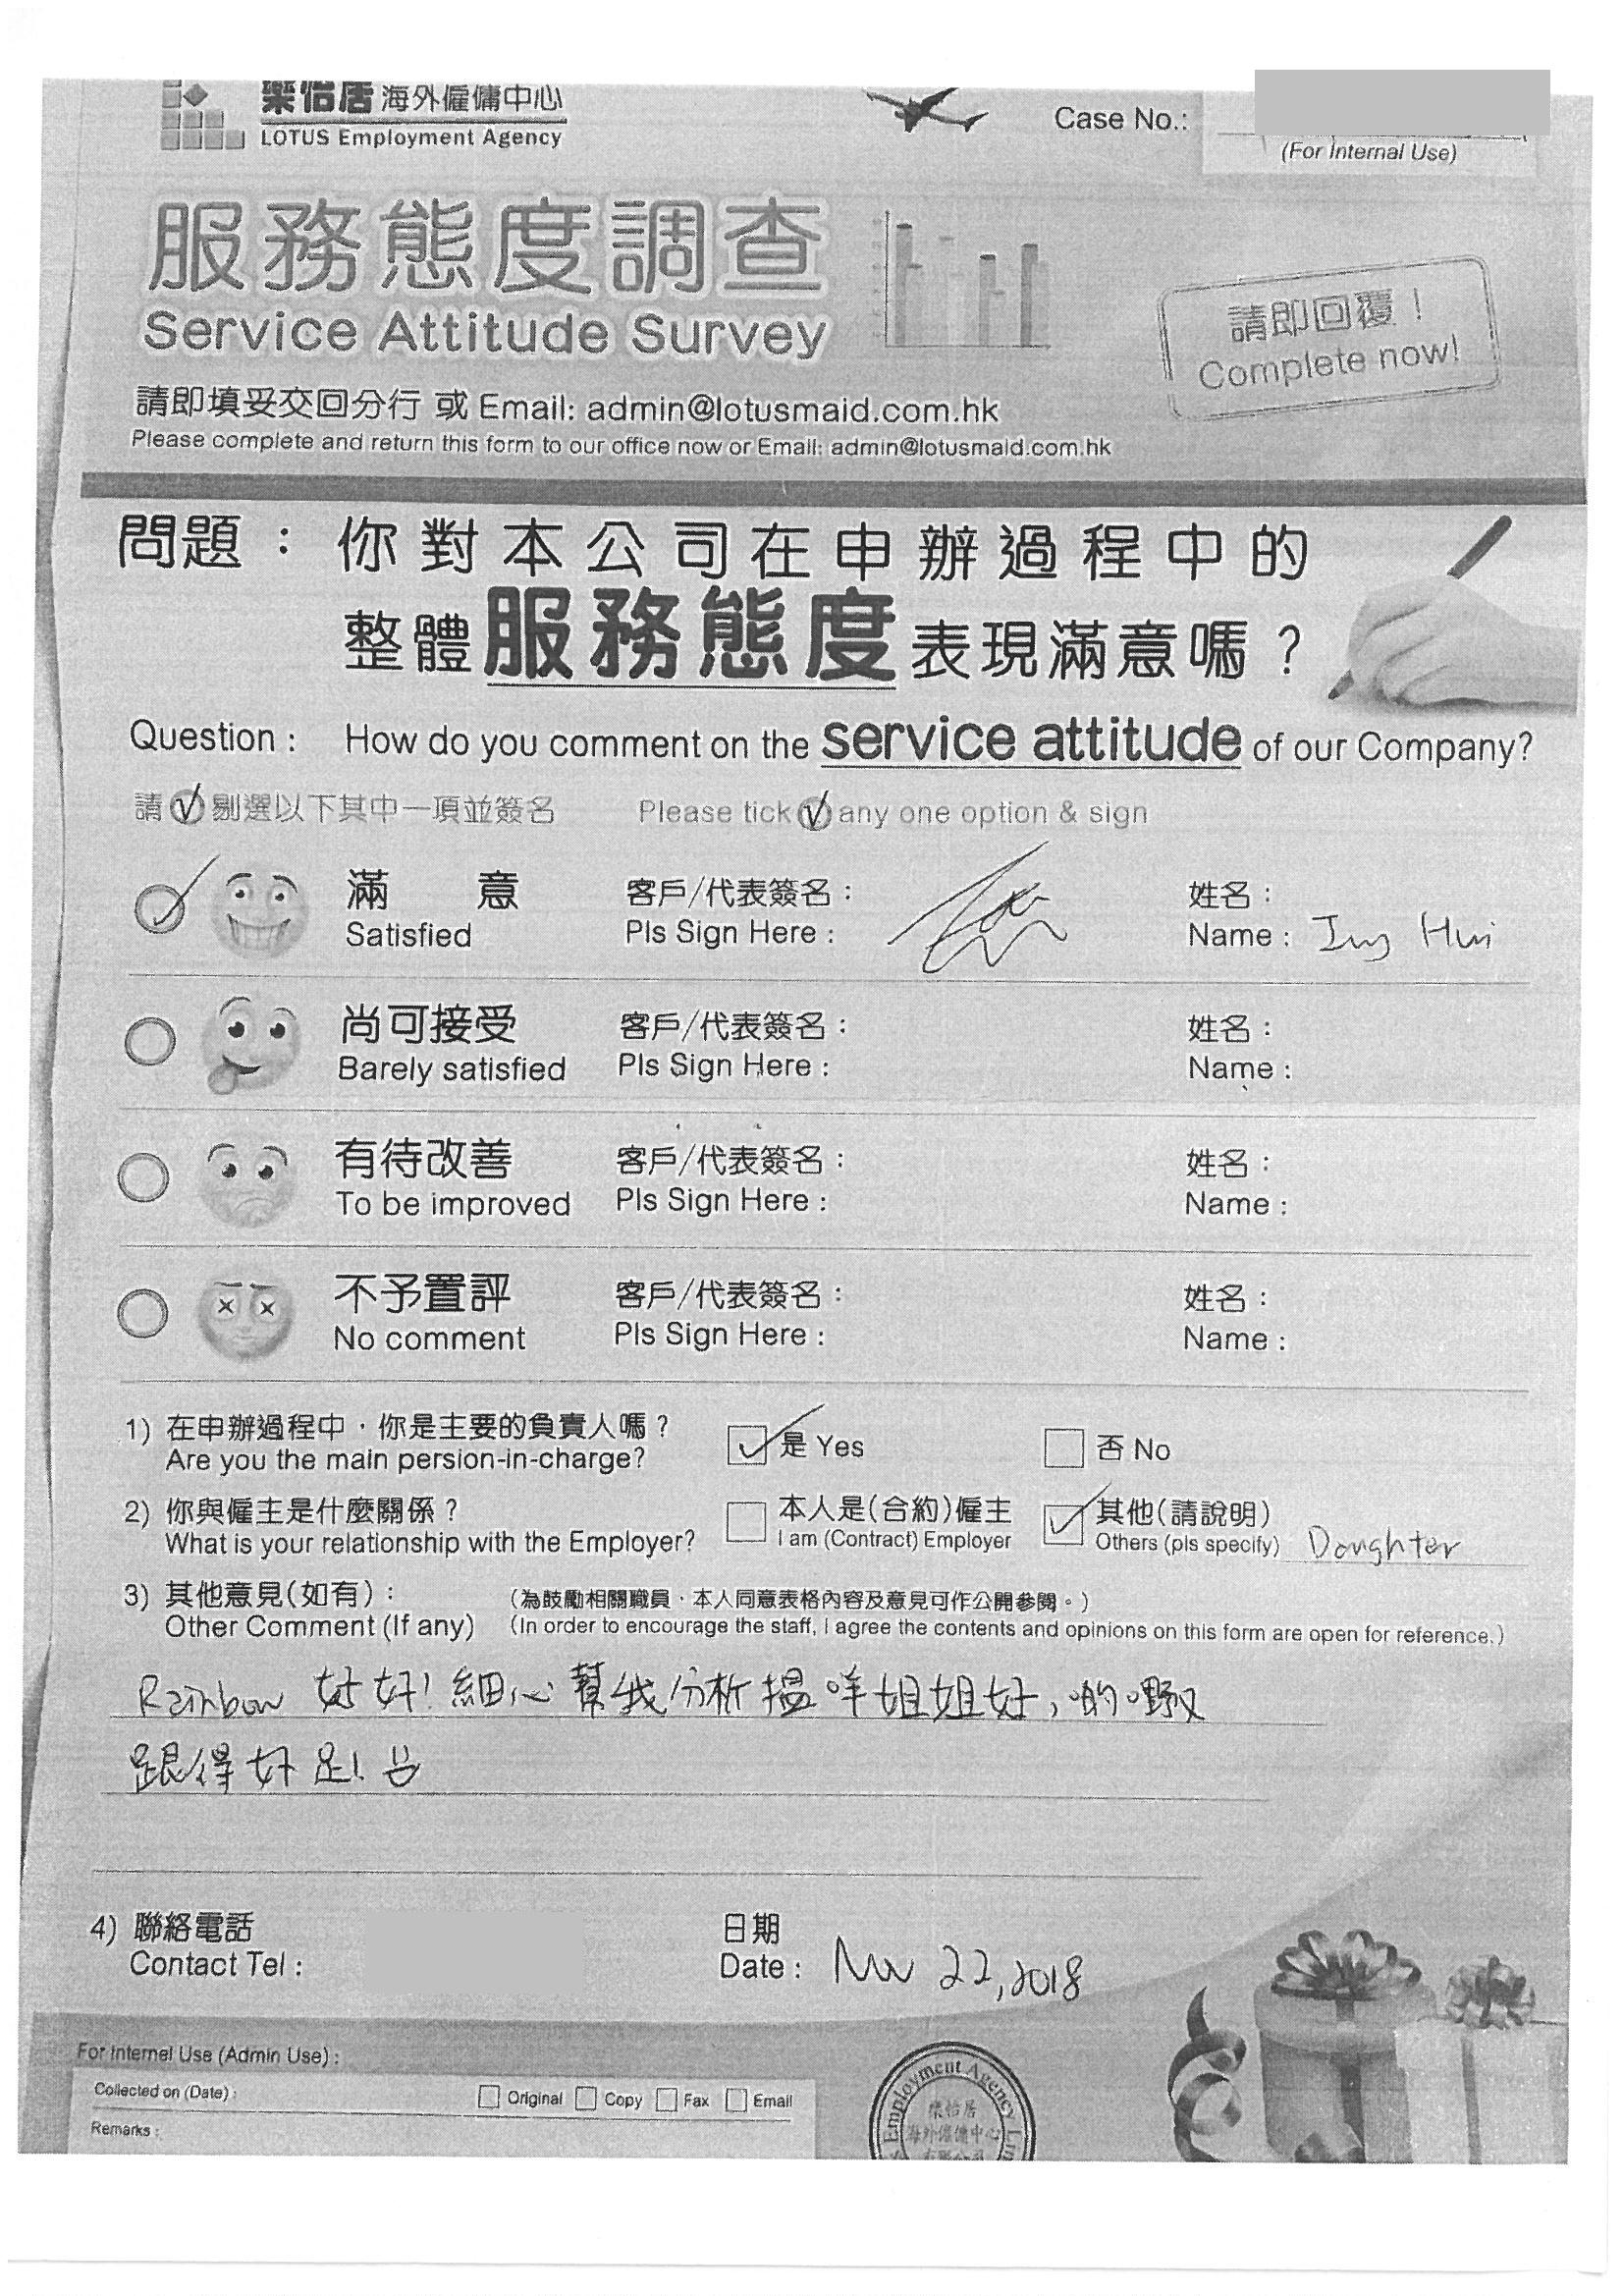 樂怡居 海外僱傭中心
LOTUS Employment Agency
Case No.:
(For Internal Use)
服務態度調查
Service Attitude Survey
請即回覆！
Complete now!
請即填妥交回分行 或 Email: admin@lotusmaid.com.hk
Please complete and return this form to our office now or Email: admin@lotusmaid.com.hk
問題： 你對本公司在申辦過程中的
整體服務態度表現滿意嗎？
Question : How do you comment on the service attitude of our Company?
請 √ 剔選以下其中一項並簽名 Please tick √ any one option & sign
滿 意 客戶/代表簽名： 姓名：
Satisfied Pls Sign Here : Name : Ing Hui
尚可接受 客戶/代表簽名： 姓名：
Barely satisfied Pls Sign Here : Name :
有待改善 客戶/代表簽名： 姓名：
To be improved Pls Sign Here : Name :
不予置評 客戶/代表簽名： 姓名：
No comment Pls Sign Here : Name :
1) 在申辦過程中，你是主要的負責人嗎？ 是 Yes 否 No
Are you the main persion-in-charge?
2) 你與僱主是什麼關係？ 本人是(合約)僱主 其他(請說明)
What is your relationship with the Employer? I am (Contract) Employer Others (pls specify) Daughter
3) 其他意見(如有)： (為鼓勵相關職員，本人同意表格內容及意見可作公開參閱。)
Other Comment (If any) (In order to encourage the staff, I agree the contents and opinions on this form are open for reference.)
Rainbow 好好! 細心幫我分析搵咩姐姐好,啲嘢又
跟得好足!
4) 聯絡電話 日期
Contact Tel : Date : Nov 22, 2018
For Internel Use (Admin Use) :
Collected on (Date) : Original Copy Fax Email
Remarks :
Employment Agency
樂怡居
海外僱傭中心